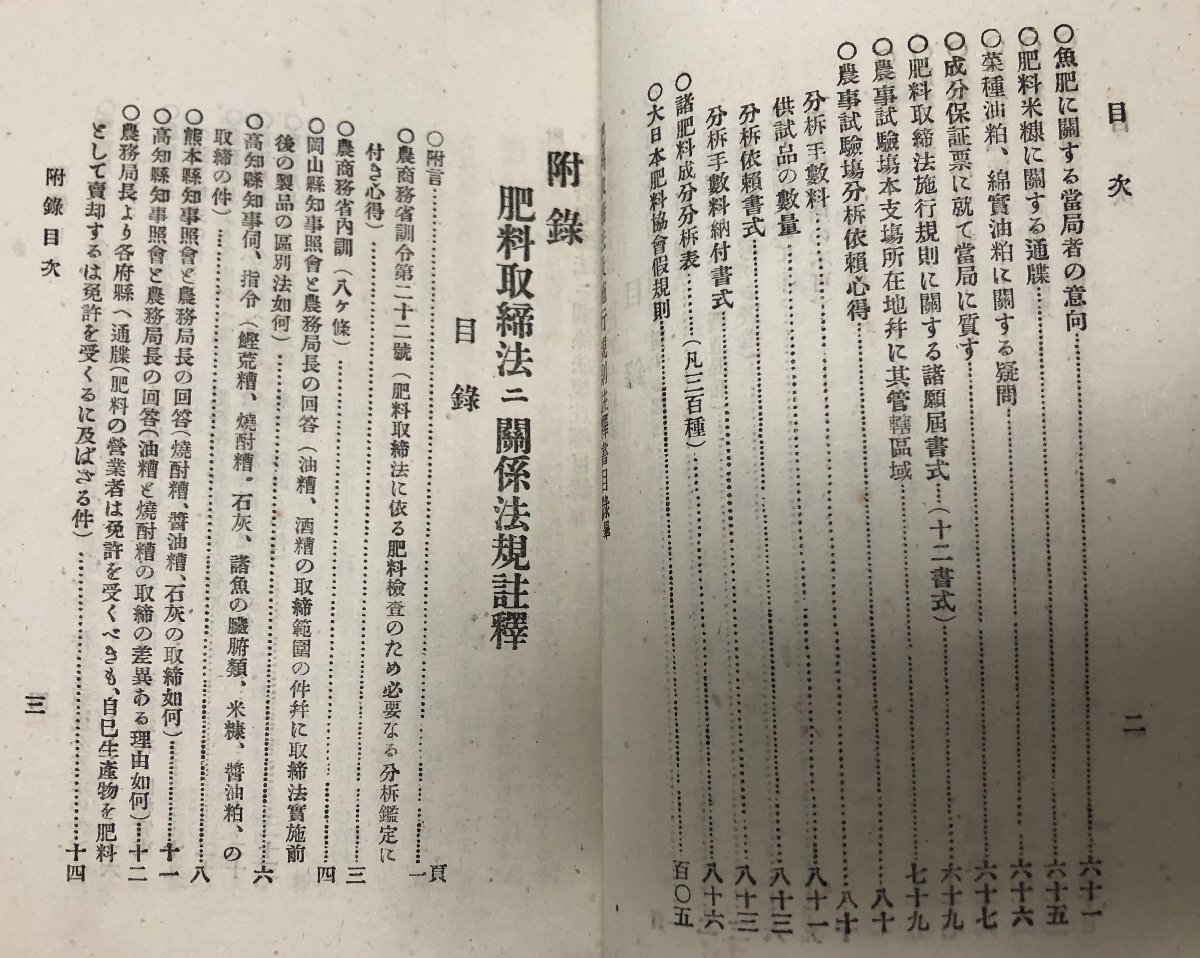 目次
○魚肥に關する當局者の意向……六十一
○肥料米糠に關する通牒……六十五
○菜種油粕、綿實油粕に關する疑問……六十六
○成分保証票に就て當局に質す……六十七
○肥料取締法施行規則に關する諸願屆書式…(十二書式)……六十九
○農事試驗塲本支塲所在地幷に其管轄區域……七十九
○農事試驗塲分柝依賴心得……八十
分柝手數料……八十
供試品の數量……八十一
分柝依賴書式……八十三
分柝手數料納付書式……八十三
○諸肥料成分分柝表……(凡三百種)……八十六
○大日本肥料協會假規則……百〇五
二
附錄
肥料取締法ニ關係法規註釋
目錄
○附言……一頁
○農商務省訓令第二十二號(肥料取締法に依る肥料檢査のため必要なる分柝鑑定に
付き心得)……三
○農商務省內訓(八ケ條)……四
○岡山縣知事照會と農務局長の回答(油糟、酒糟の取締範圍の件幷に取締法實施前
後の製品の區別法如何)……六
○高知縣知事伺、指令(鰹荒糟、燒酎糟、石灰、諸魚の臟腑類、米糠、醬油粕、の
取締の件)……八
○熊本縣知事照會と農務局長の回答(燒酎糟、醬油糟、石灰の取締如何)……十一
○高知縣知事照會と農務局長の回答(油糟と燒酎糟の取締の差異ある理由如何)……十二
○農務局長より各府縣へ通牒(肥料の營業者は免許を受くべきも、自己生產物を肥料
として賣却するは免許を受くるに及ばざる件)……十四
附錄目次
三